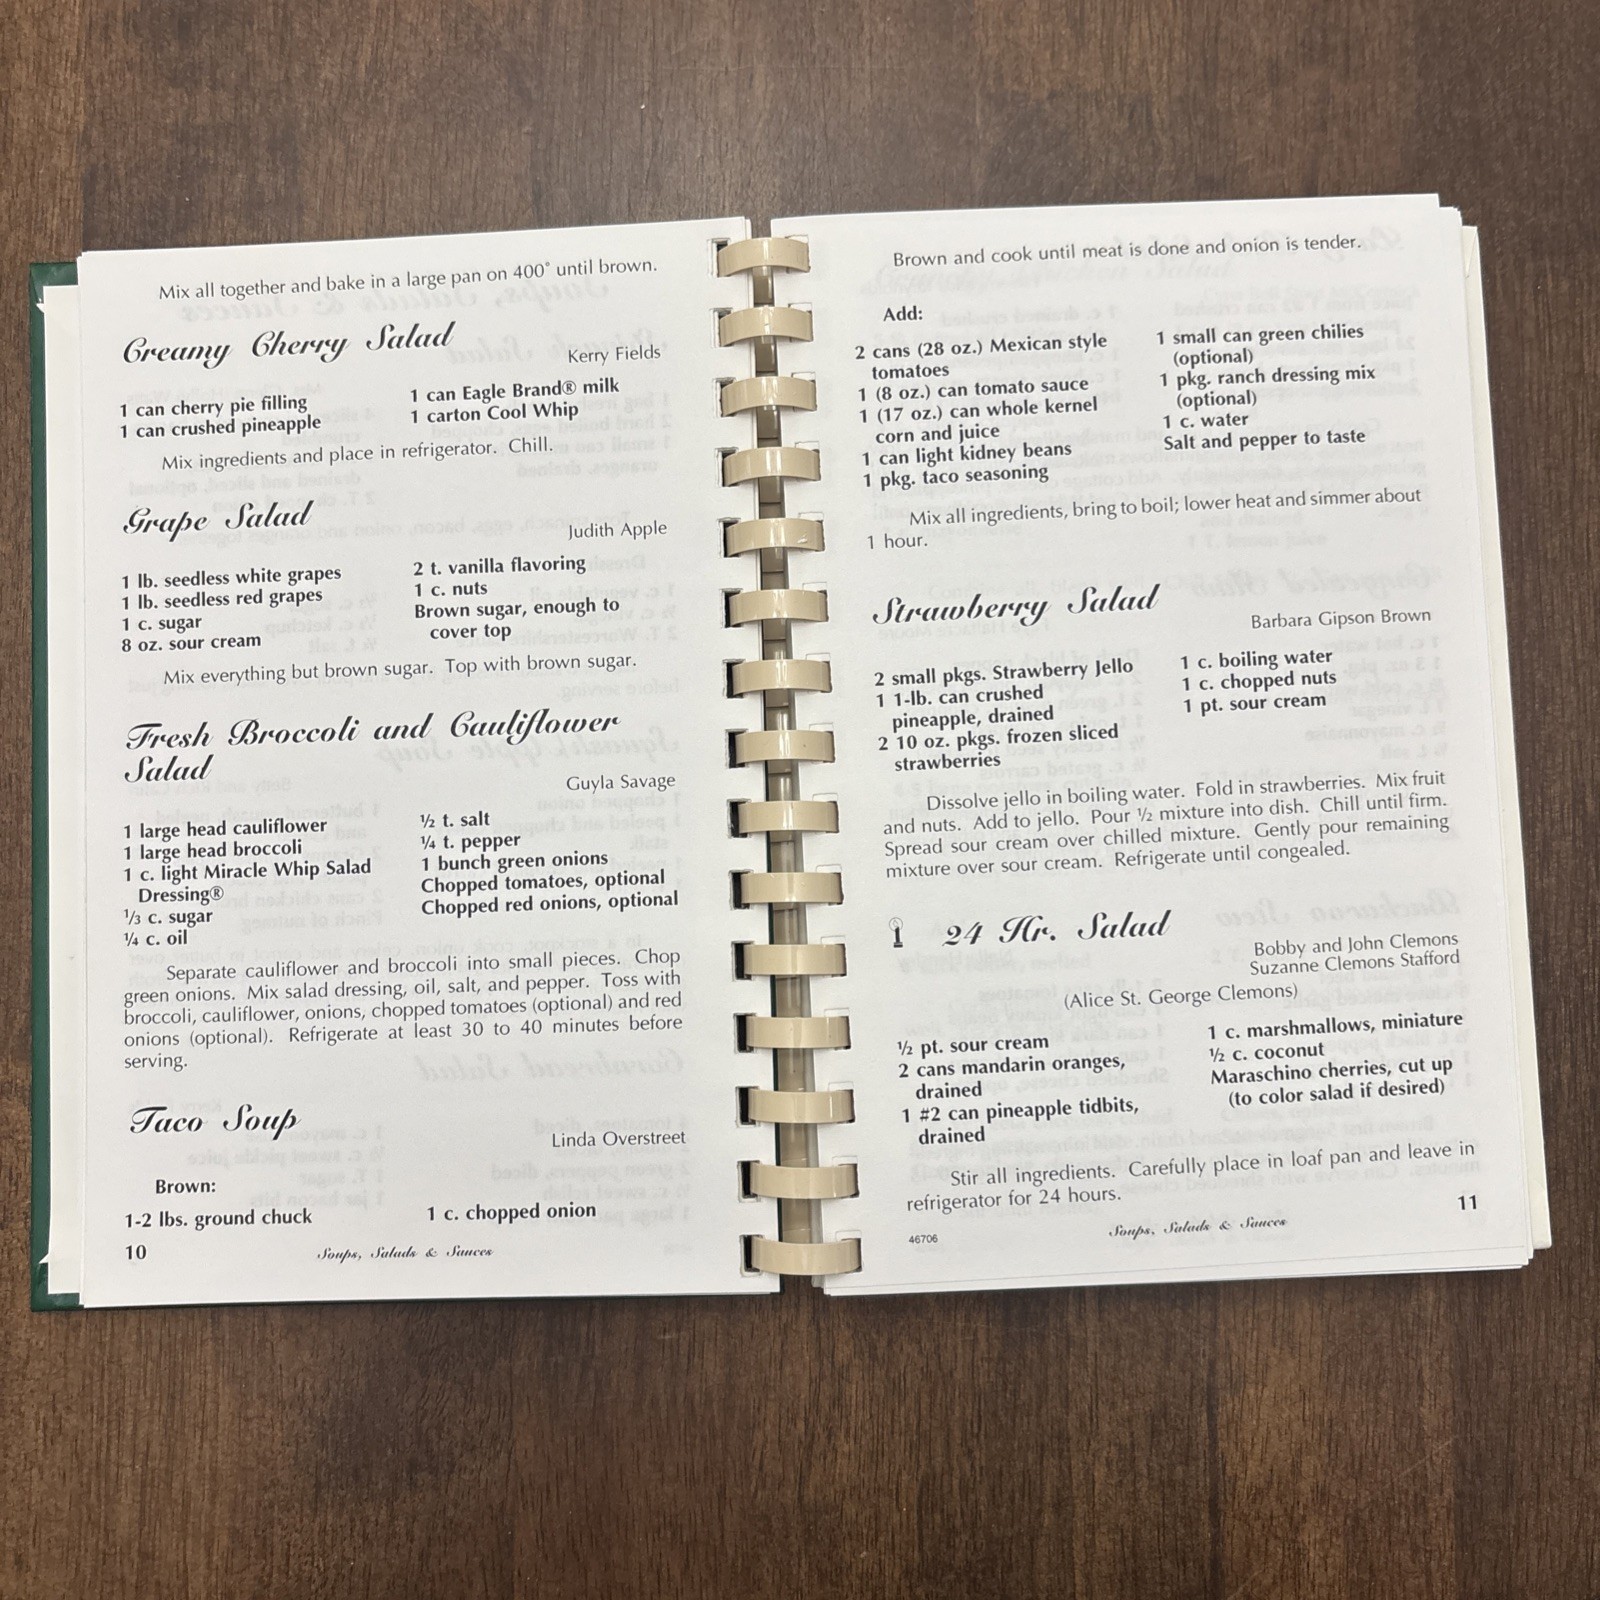 Mix all together and bake in a large pan on 400° until brown.
Creamy Cherry Salad
Kerry Fields
1 can cherry pie filling
1 can crushed pineapple
1 can Eagle Brand® milk
1 carton Cool Whip
Mix ingredients and place in refrigerator. Chill.
Grape Salad
Judith Apple
1 lb. seedless white grapes
1 lb. seedless red grapes
1 c. sugar
8 oz. sour cream
2 t. vanilla flavoring
1 c. nuts
Brown sugar, enough to
cover top
Mix everything but brown sugar. Top with brown sugar.
Fresh Broccoli and Cauliflower
Salad
Guyla Savage
1 large head cauliflower
1 large head broccoli
1 c. light Miracle Whip Salad
Dressing®
1/3 c. sugar
¼ c. oil
½ t. salt
¼ t. pepper
1 bunch green onions
Chopped tomatoes, optional
Chopped red onions, optional
Separate cauliflower and broccoli into small pieces. Chop
green onions. Mix salad dressing, oil, salt, and pepper. Toss with
broccoli, cauliflower, onions, chopped tomatoes (optional) and red
onions (optional). Refrigerate at least 30 to 40 minutes before
serving.
Taco Soup
Linda Overstreet
Brown:
1-2 lbs. ground chuck
1 c. chopped onion
10
Soups, Salads & Sauces
Brown and cook until meat is done and onion is tender.
Add:
2 cans (28 oz.) Mexican style
tomatoes
1 (8 oz.) can tomato sauce
1 (17 oz.) can whole kernel
corn and juice
1 can light kidney beans
1 pkg. taco seasoning
1 small can green chilies
(optional)
1 pkg. ranch dressing mix
(optional)
1 c. water
Salt and pepper to taste
Mix all ingredients, bring to boil; lower heat and simmer about
1 hour.
Strawberry Salad
Barbara Gipson Brown
2 small pkgs. Strawberry Jello
1 1-lb. can crushed
pineapple, drained
2 10 oz. pkgs. frozen sliced
strawberries
1 c. boiling water
1 c. chopped nuts
1 pt. sour cream
Dissolve jello in boiling water. Fold in strawberries. Mix fruit
and nuts. Add to jello. Pour ½ mixture into dish. Chill until firm.
Spread sour cream over chilled mixture. Gently pour remaining
mixture over sour cream. Refrigerate until congealed.
24 Hr. Salad
Bobby and John Clemons
Suzanne Clemons Stafford
(Alice St. George Clemons)
½ pt. sour cream
2 cans mandarin oranges,
drained
1 #2 can pineapple tidbits,
drained
1 c. marshmallows, miniature
½ c. coconut
Maraschino cherries, cut up
(to color salad if desired)
Stir all ingredients. Carefully place in loaf pan and leave in
refrigerator for 24 hours.
46706
Soups, Salads & Sauces
11